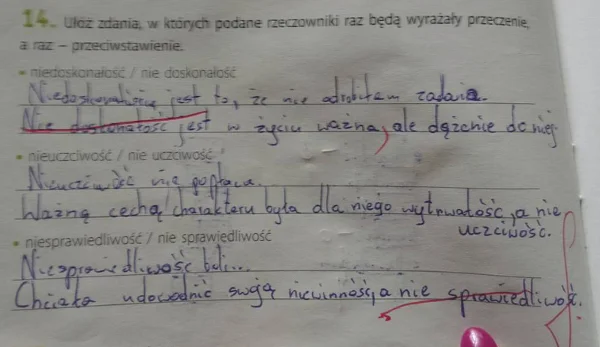 14. Ułóż zdania, w których podane rzeczowniki raz będą wyrażały przeczenie,
a raz – przeciwstawienie.
• niedoskonałość / nie doskonałość
Niedoskonałością jest to, że nie odrobiłam zadania.
Nie doskonałość jest w życiu ważna, ale dążenie do niej.
• nieuczciwość / nie uczciwość
Nieuczciwość nie popłaca.
Ważną cechą charakteru była dla niego wytrwałość, a nie
uczciwość.
• niesprawiedliwość / nie sprawiedliwość
Niesprawiedliwość boli...
Chciała udowodnić swoją niewinność, a nie sprawiedliwość.